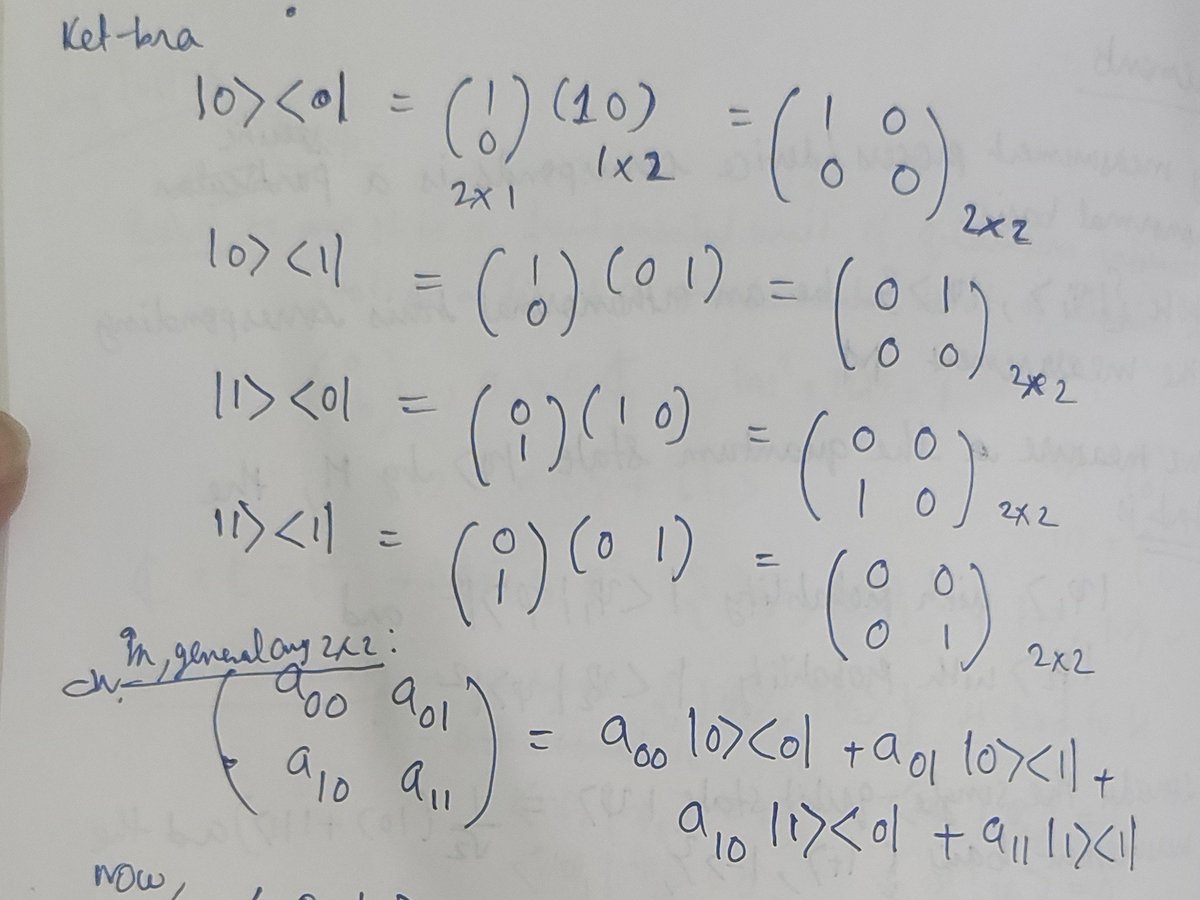 Ket-bra
|0><0| = (1 0) (1 0) = (1 0 0 0) 2x2
2x1 1x2
|0><1| = (1 0) (0 1) = (0 1 0 0) 2x2
|1><0| = (0 1) (1 0) = (0 0 1 0) 2x2
|1><1| = (0 1) (0 1) = (0 0 0 1) 2x2
In, general any 2x2:
(a00 a01 a10 a11) = a00 |0><0| + a01 |0><1| +
a10 |1><0| + a11 |1><1|
now,